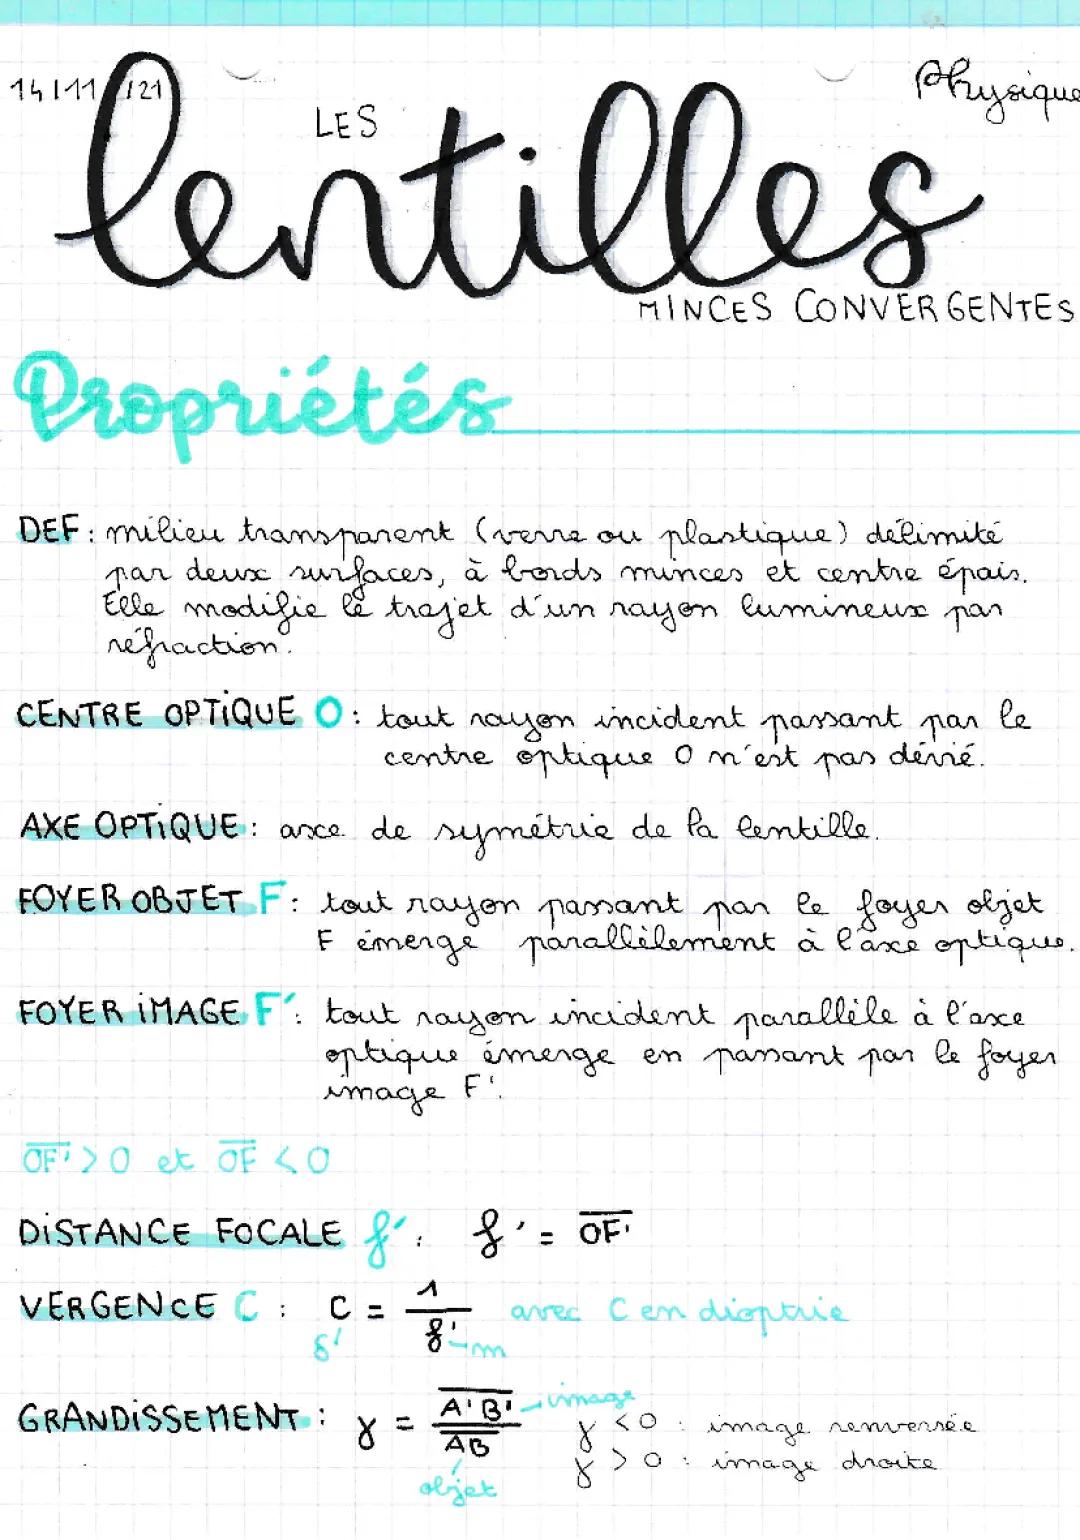 14/11/21
Physique
LES
lentilles
MINCES CONVERGENTES
Propriétés
DEF : milieu transparent (verre ou plastique) délimité
par deux surfaces, à bords minces et centre épais.
Elle modifie le trajet d'un rayon lumineux par
réfraction.
CENTRE OPTIQUE O : tout rayon incident passant par le
centre optique O n'est pas dévié.
AXE OPTIQUE : axe de symétrie de la lentille.
FOYER OBJET F : tout rayon passant par le foyer objet
F émerge parallèlement à l'axe optique.
FOYER IMAGE F' : tout rayon incident parallèle à l'axe
optique émerge en passant par le foyer
image F'.
O͞F͞' > 0 et O͞F͞ < 0
DISTANCE FOCALE f' : f' = O͞F͞'
VERGENCE C : C = 1/f' avec C en dioptrie
δ' m
GRANDISSEMENT : γ = A͞'͞B͞'/A͞B͞ image
γ < 0 : image renversée
γ > 0 : image droite
objet